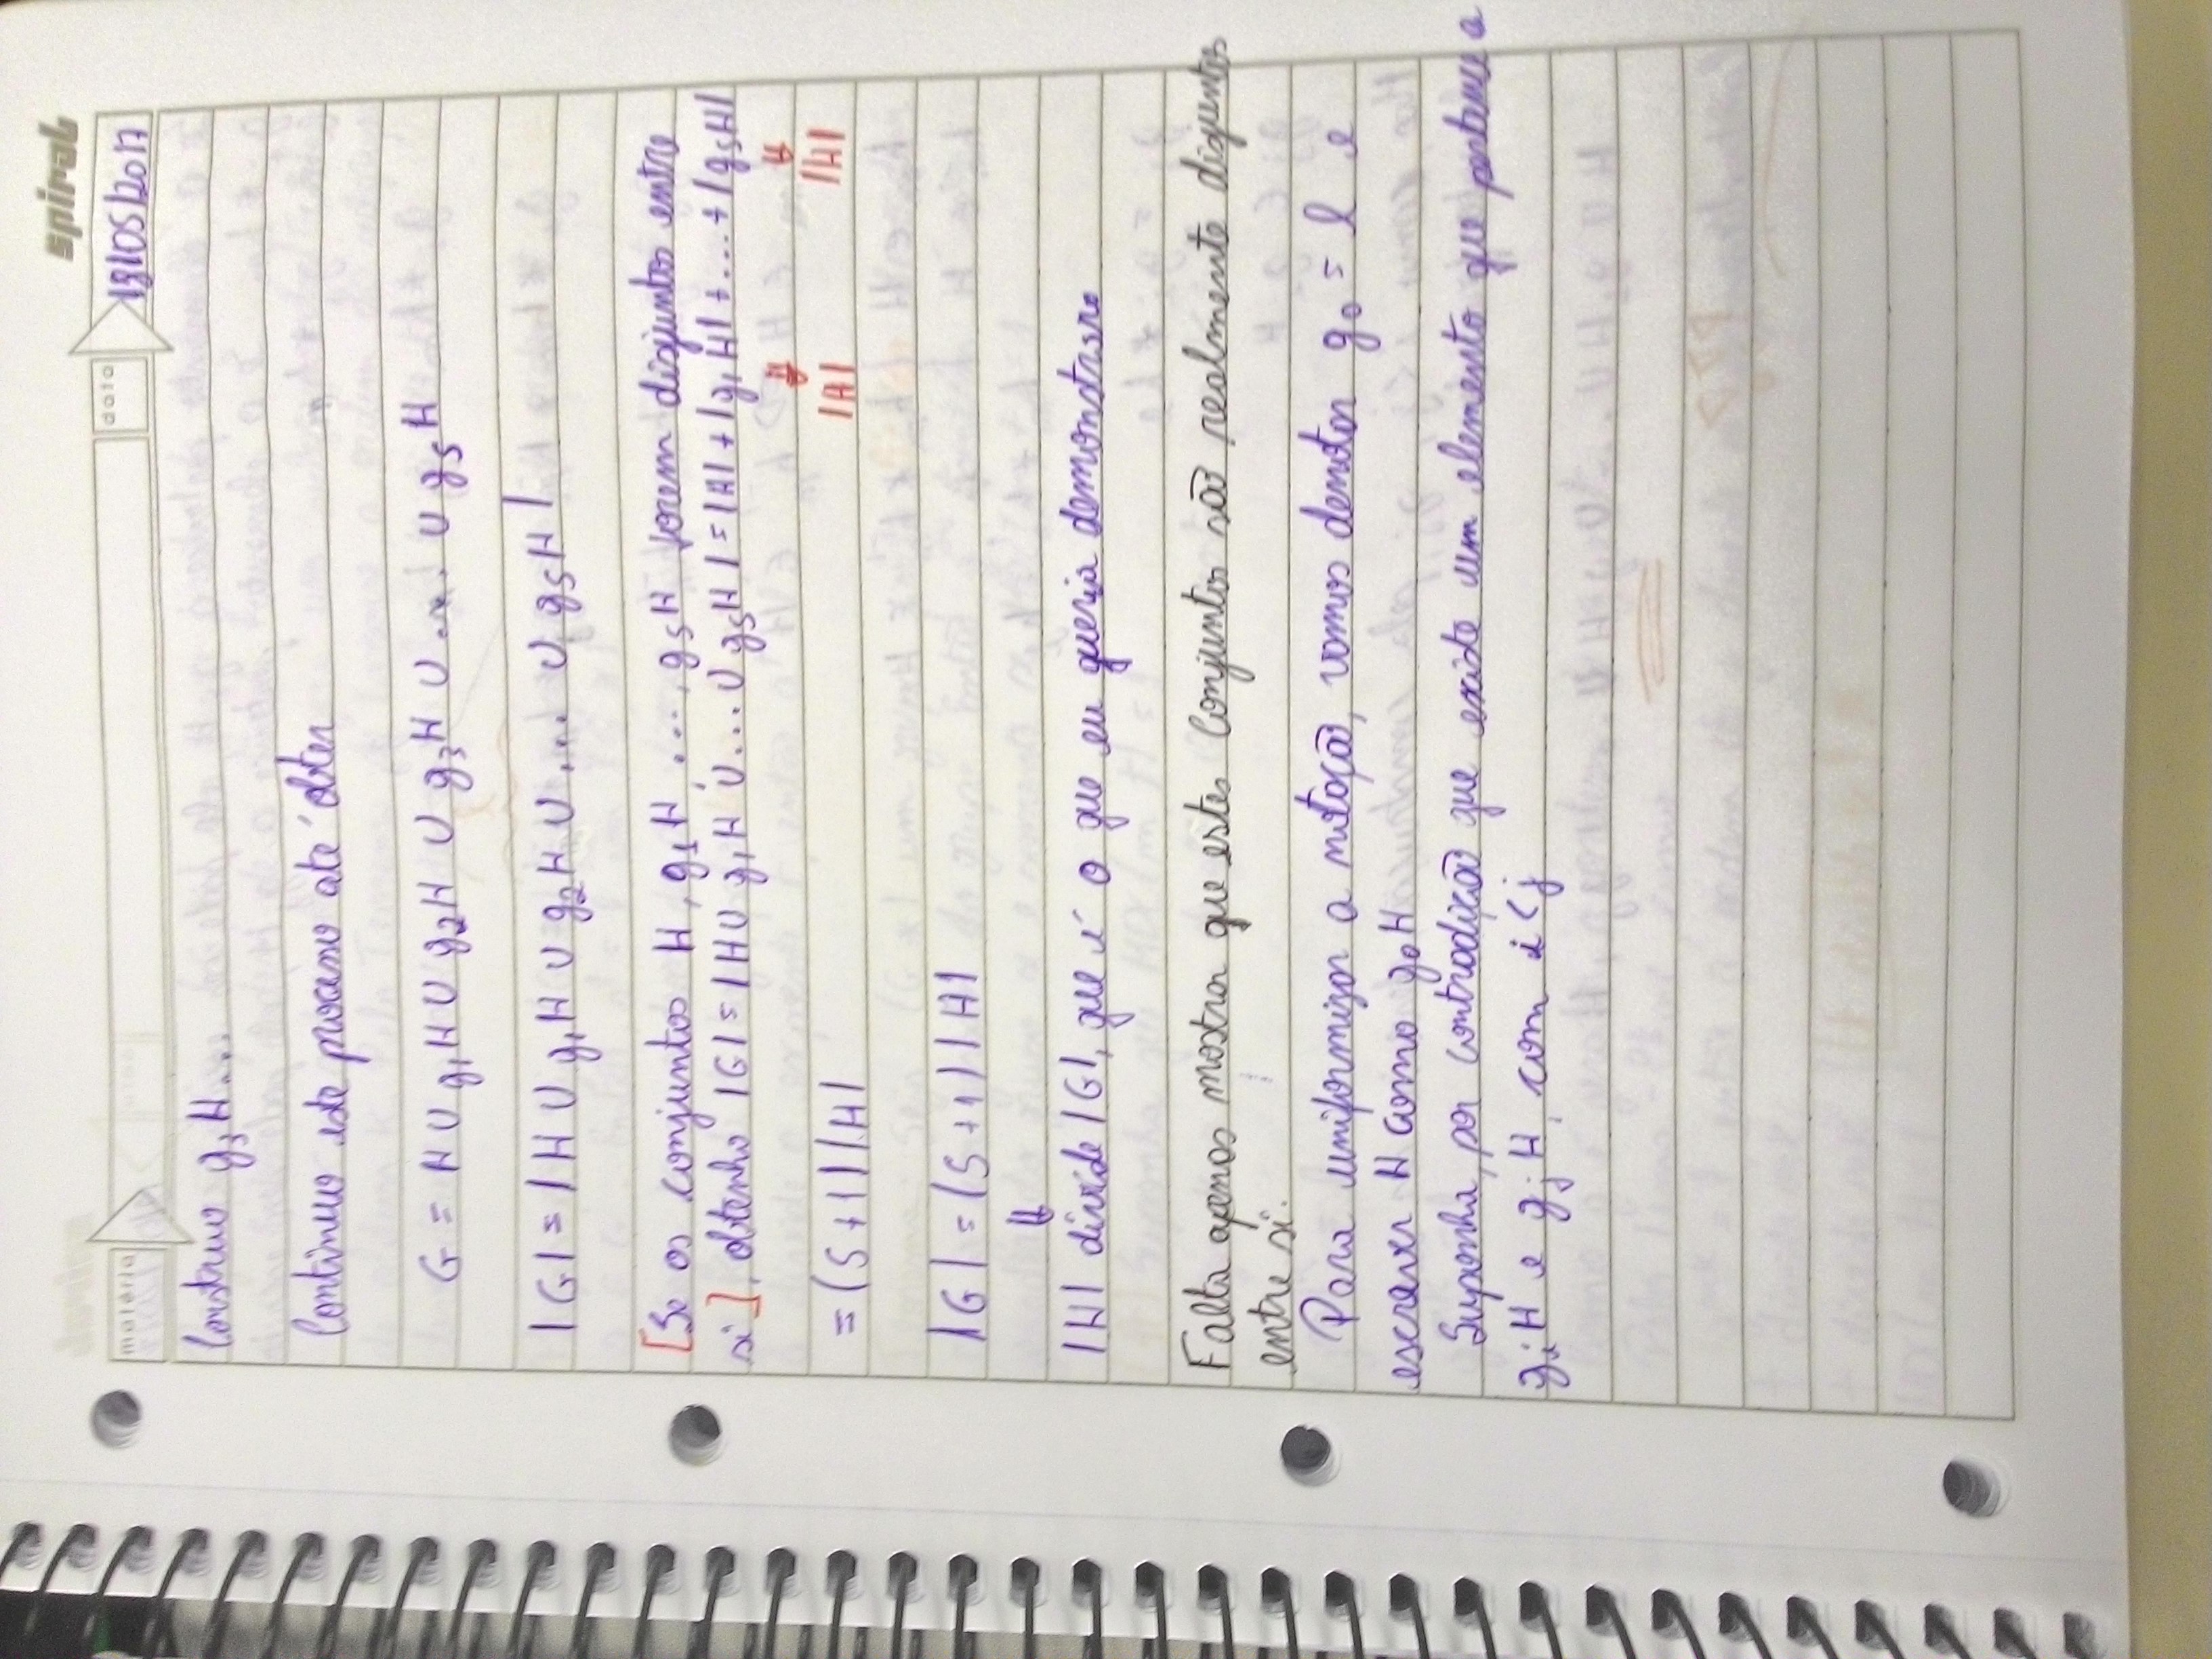 spiral
matéria
data
18/05/2017
Construo g₃H...
Continuo este processo até obter
G = H ∪ g₁H ∪ g₂H ∪ g₃H ∪ ... ∪ gₛH
|G| = |H ∪ g₁H ∪ g₂H ∪ ... ∪ gₛH|
[Se os conjuntos H, g₁H, ..., gₛH forem disjuntos entre
si], obtenho |G| = |H ∪ g₁H ∪ ... ∪ gₛH| = |H| + |g₁H| + ... + |gₛH|
⇓ ⇓
|H| |H|
= (S+1)|H|
|G| = (S+1)|H|
⇓
|H| divide |G|, que é o que eu queria demonstrar.
Falta apenas mostrar que estes conjuntos são realmente disjuntos
entre si.
Para uniformizar a notação, vamos denotar g₀ = e e
escrever H como g₀H
Suponha, por contradição que existe um elemento que pertence a
gᵢH e gⱼH, com i<j